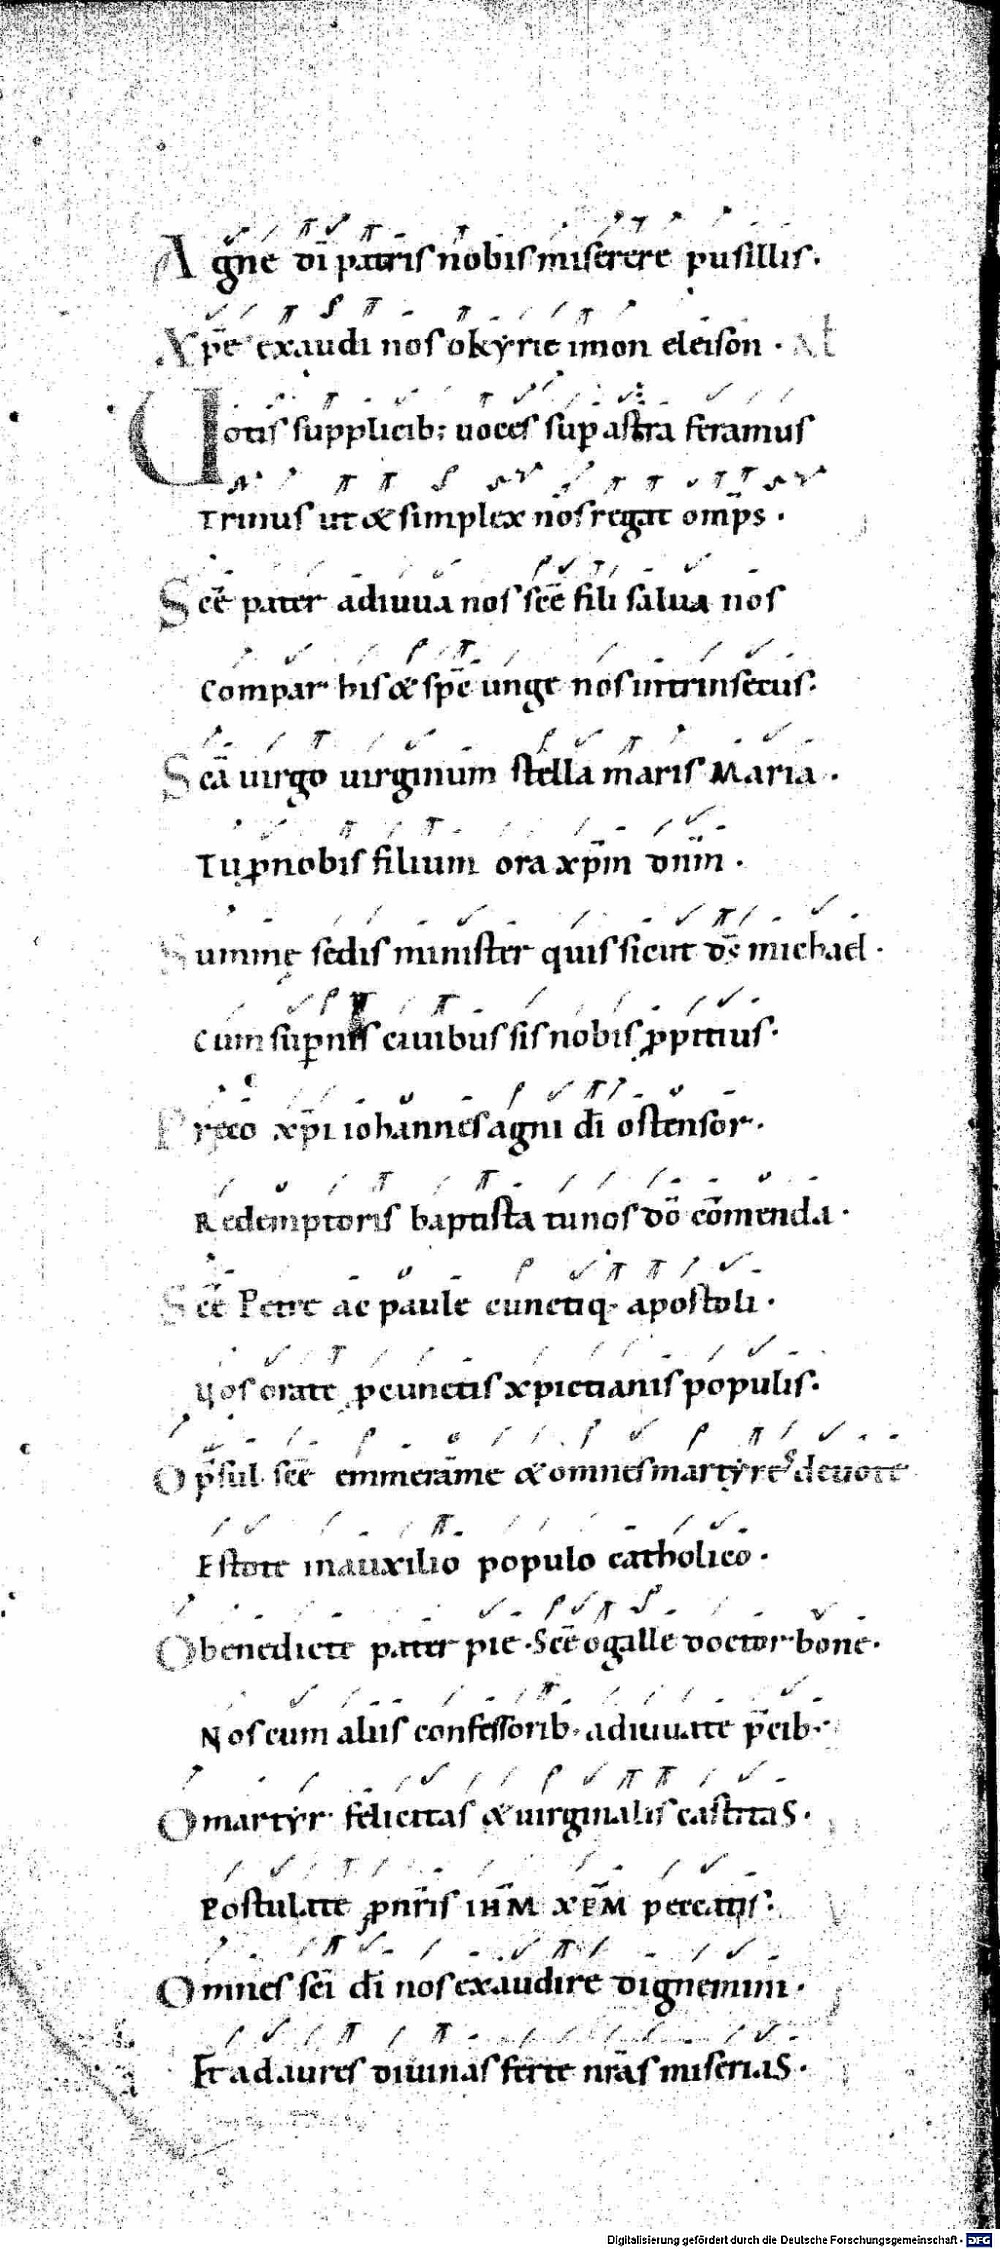 Agne dī patris nobis miserere pusillis.
Xp̄e exaudi nos o kyrie imon eleison.
Uotis supplicib; uoces sup̱ astra feramus
Trinus ut & simplex nos regat omp̄s.
Scē pater adiuua nos scē fili salua nos
Compar his & sp̄c unge nos intrinsecus.
Scā uirgo uirginum stella maris Maria.
Tu ꝓ nobis filium ora xp̄m dn̄m.
Summę sedis minister quis sicut dš michael.
Cum sup̱nis ciuibus sis nobis ꝓpitius.
Preco xp̄i iohannes agni dī ostensor.
Redemptoris baptista tu nos dō cōmenda.
Scē Petre ac paule cunctiq· apostoli.
Uos orate ꝓ cunctis xpictianis populis.
O p̄sul scē emmerāme & omnes martyres deuote
Estote in auxilio populo catholico.
O benedicte pater pie. Scē o galle doctor bone.
Nos cum aliis confessorib; adiuuate p̄cib;
O martyr felicitas & uirginalis castitas.
Postulate ꝓ nr̄is ihm̄ xp̄m peccatis.
Omnes scī dī nos exaudire dignemini.
Et ad aures diuinas ferte nrās miserias.
Digitalisierung gefördert durch die Deutsche Forschungsgemeinschaft - DFG